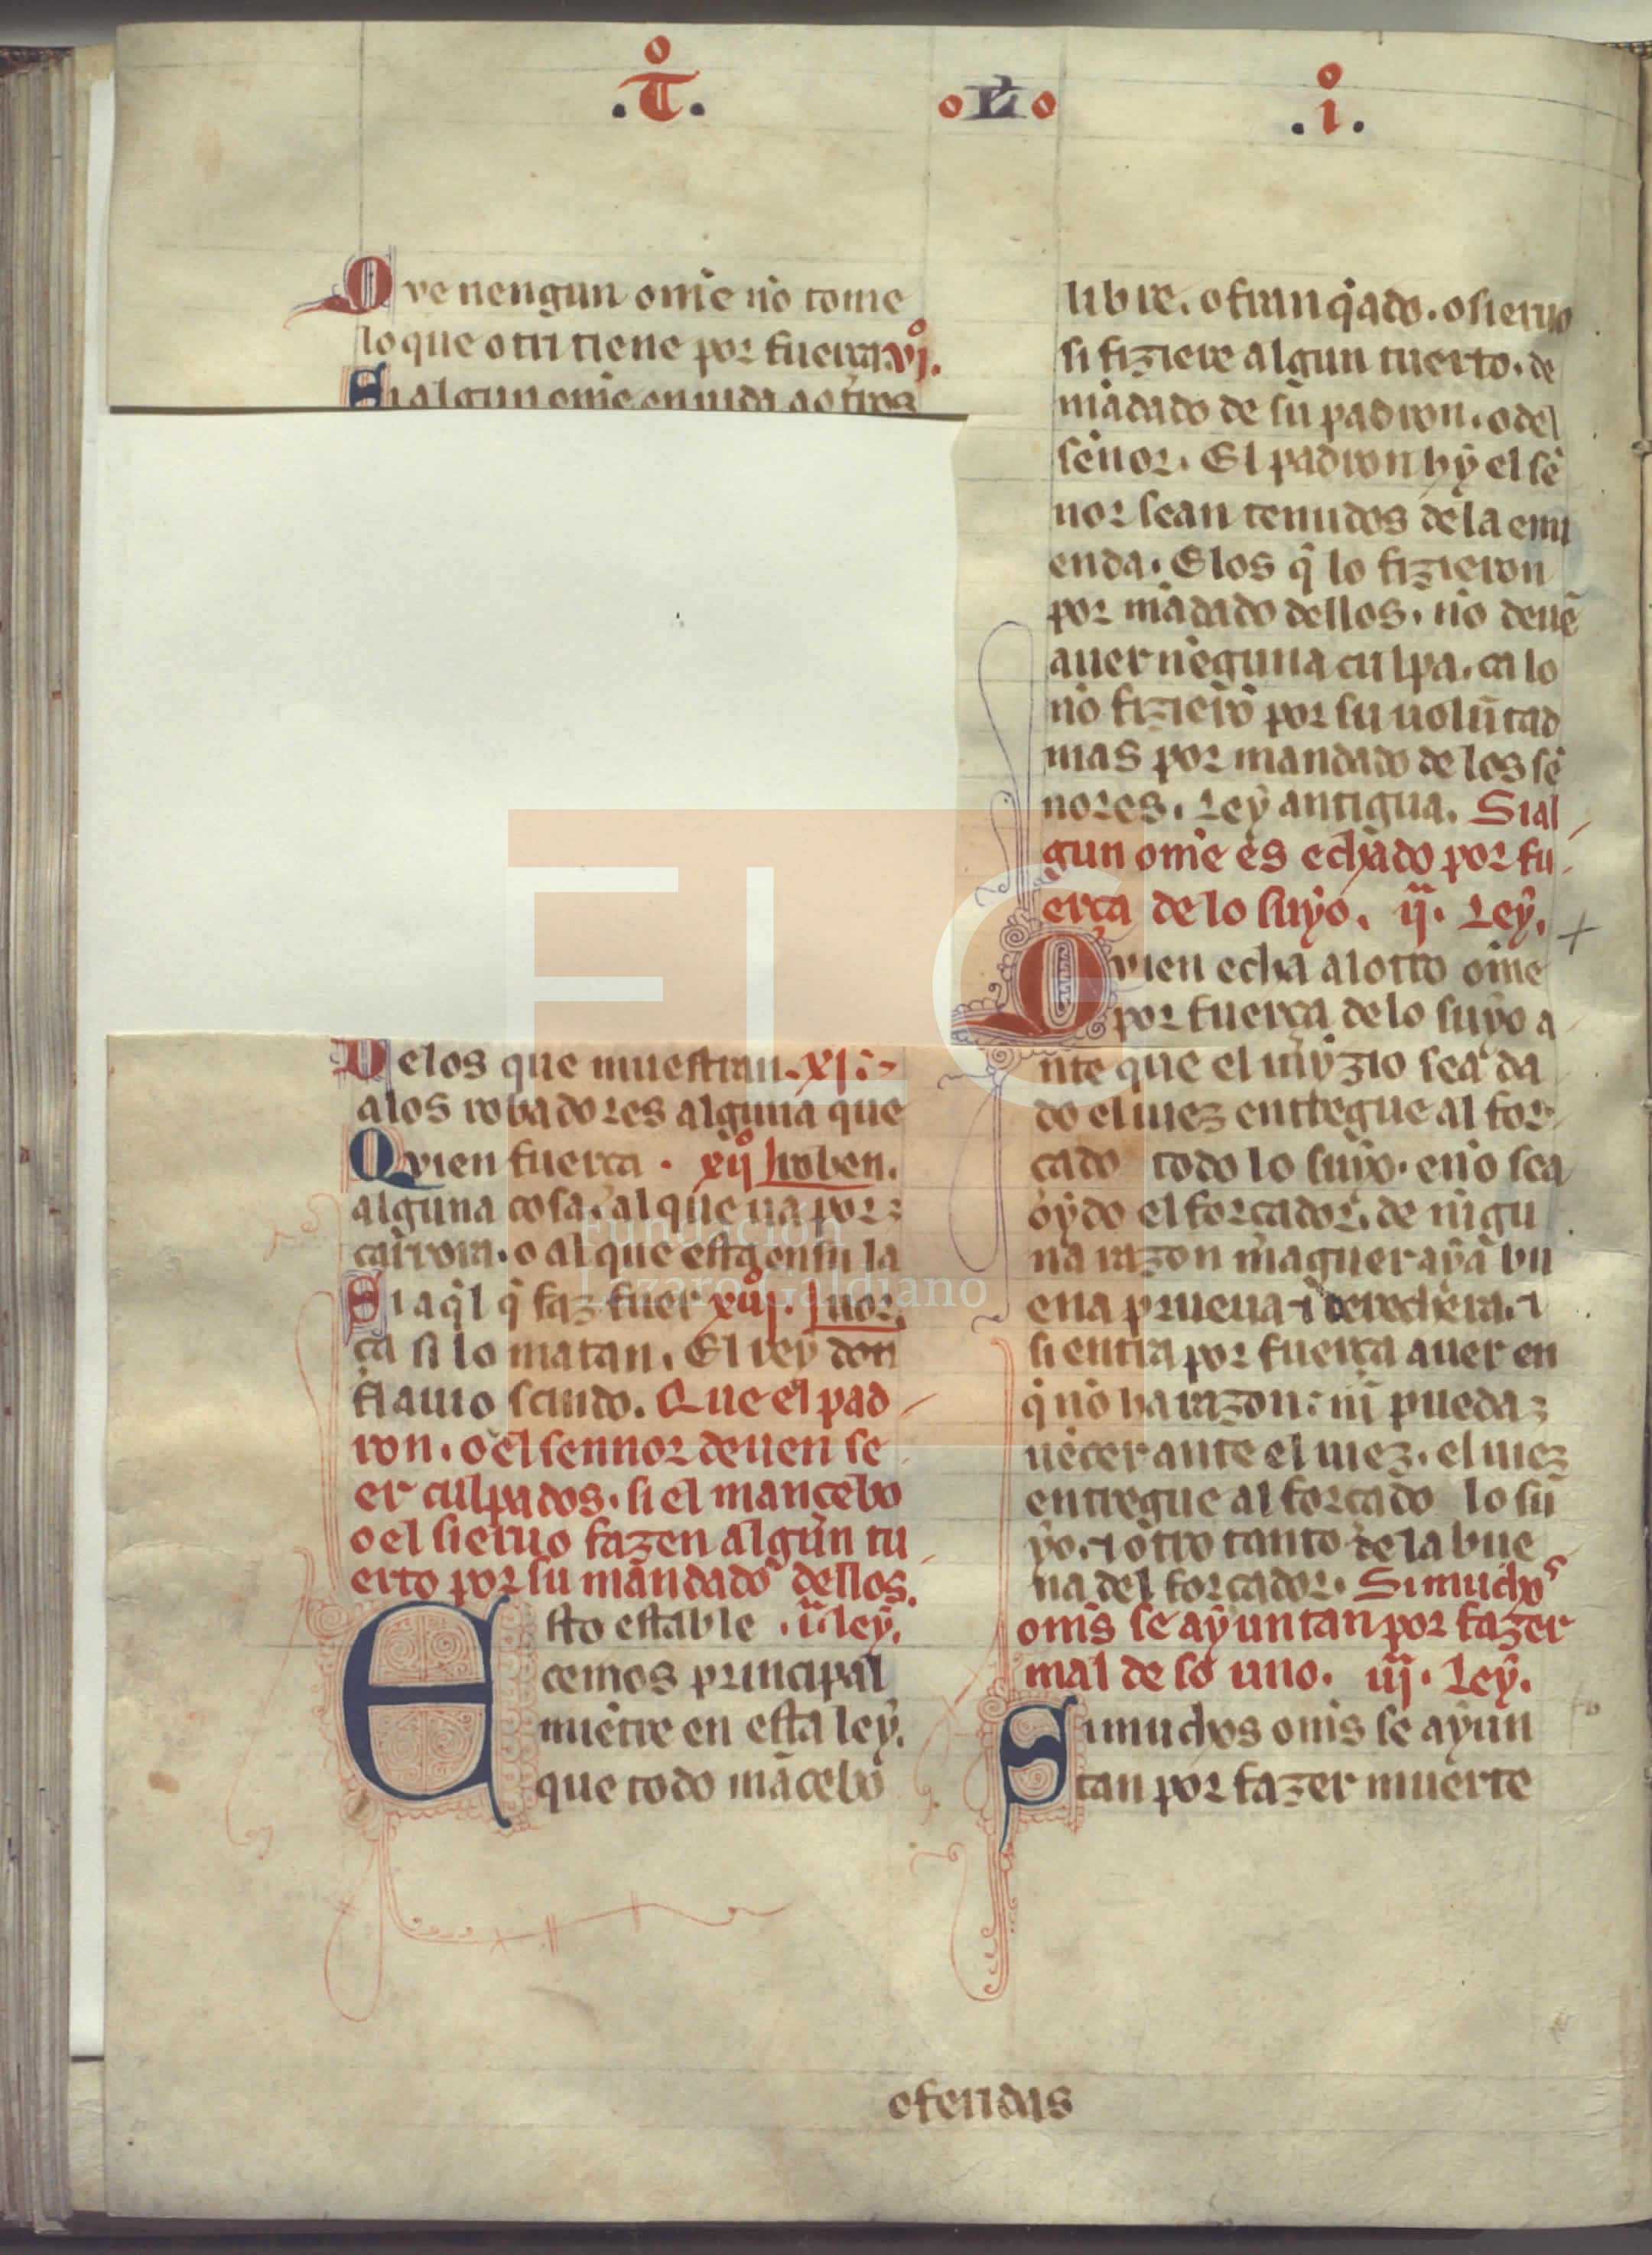 .T. L .i.
Que nengun om̃e nõ tome
lo que otri tiene por fuerça. vi.
Si algun om̃e enuida aotros
Delos que muestran. xi.
alos robadores alguna que
Quien fuerça. xii roben.
alguna cosa. al que ua por
carrera. o al que esta en su la
Si aq̃l q̃ faz fuer xiii. uor.
ça si lo matan. El rey don
flauio scindo. Que el pad
ron. o el sennor deuen se
er culpados. si el mancebo
o el sieruo fazen algun tu
erto por su mandado dellos.
Esto estable .i. ley.
cemos principal
miẽtre en esta ley.
que todo mãcebo
libre. o franq̃ado. o sieruo
si fiziere algun tuerto. de
mãdado de su padron. o del
señor. El padron hy el sẽ
nor sean tenudos dela emi
enda. E los q̃ lo fizieron
por mãdado dellos. nõ deuẽ
auer nẽguna culpa. ca lo
nõ fizierõ por su uolũtad
mas por mandado de los sẽ
nores. Ley antigua. Si al
gun om̃e es echado por fu
erça de lo suyo. ii. Ley.
Quien echa alotro om̃e
por fuerça de lo suyo a
nte que el iuyzio sea da
do el iuez entregue al for
çado todo lo suyo. e nõ sea
oydo el forçador. de nigu
na razon maguer aya bu
ena prueua ⁊ derechera. ⁊
si entra por fuerça auer en
q̃ nõ ha razon: nĩ pueda
uẽcer ante el iuez. el iuez
entregue al forçado lo su
yo. ⁊ otro tanto de la bue
na del forçador. Si muchos
om̃s se ayuntan por fazer
mal de so uno. iii. Ley.
Si muchos om̃s se ayun
tan por fazer muerte
ofendas
Fundación
Lázaro Galdiano
FLG